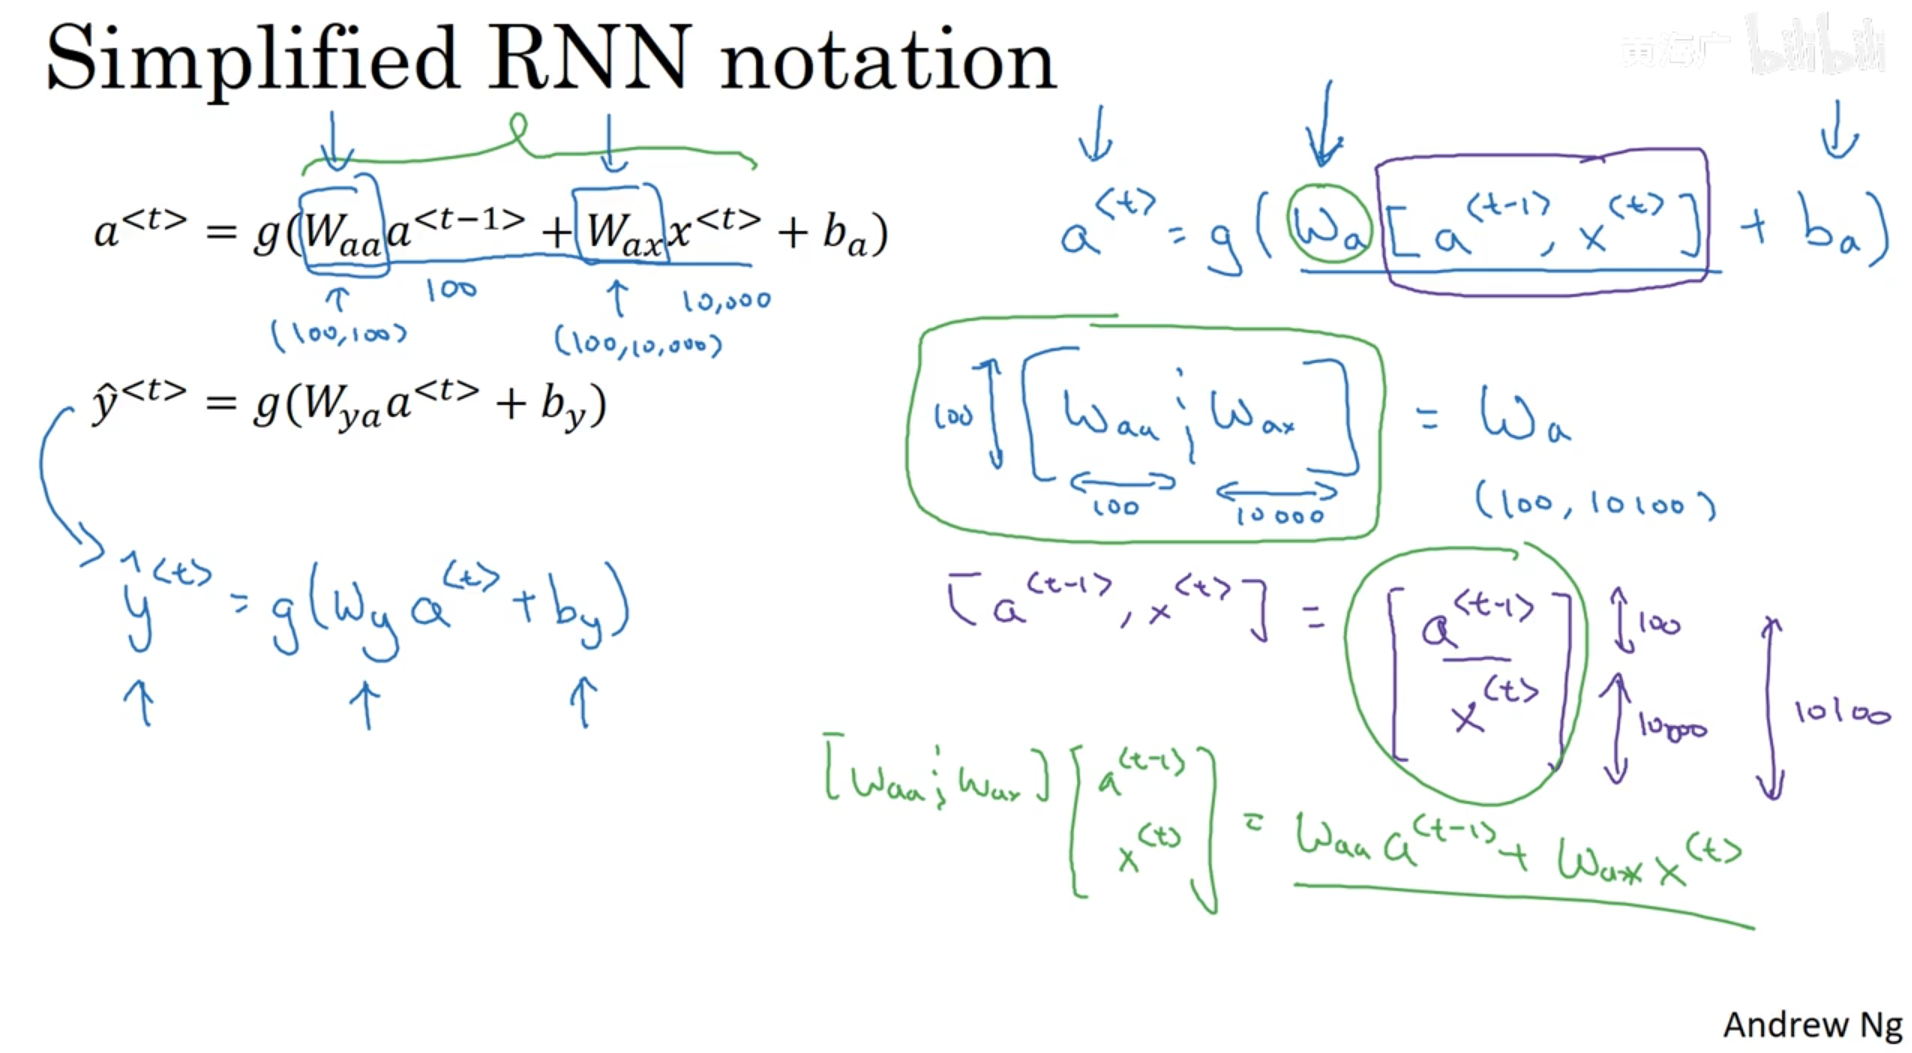 Simplified RNN notation
黄海广 bilibili
a<t> = g(Waa a<t−1> + Wax x<t> + ba)
100
10,000
(100,100)
(100,10,000)
ŷ<t> = g(Wya a<t> + by)
ŷ<t> = g(Wy a<t> + by)
a<t> = g(Wa [a<t-1>, x<t>] + ba)
100 [Waa ¦ Wax] = Wa
100
10000
(100, 10100)
[a<t-1>, x<t>] = [a<t-1>
x<t>]
100
10000
10100
[Waa ¦ Wax] [a<t-1>
x<t>] = Waa a<t-1> + Wax x<t>
Andrew Ng